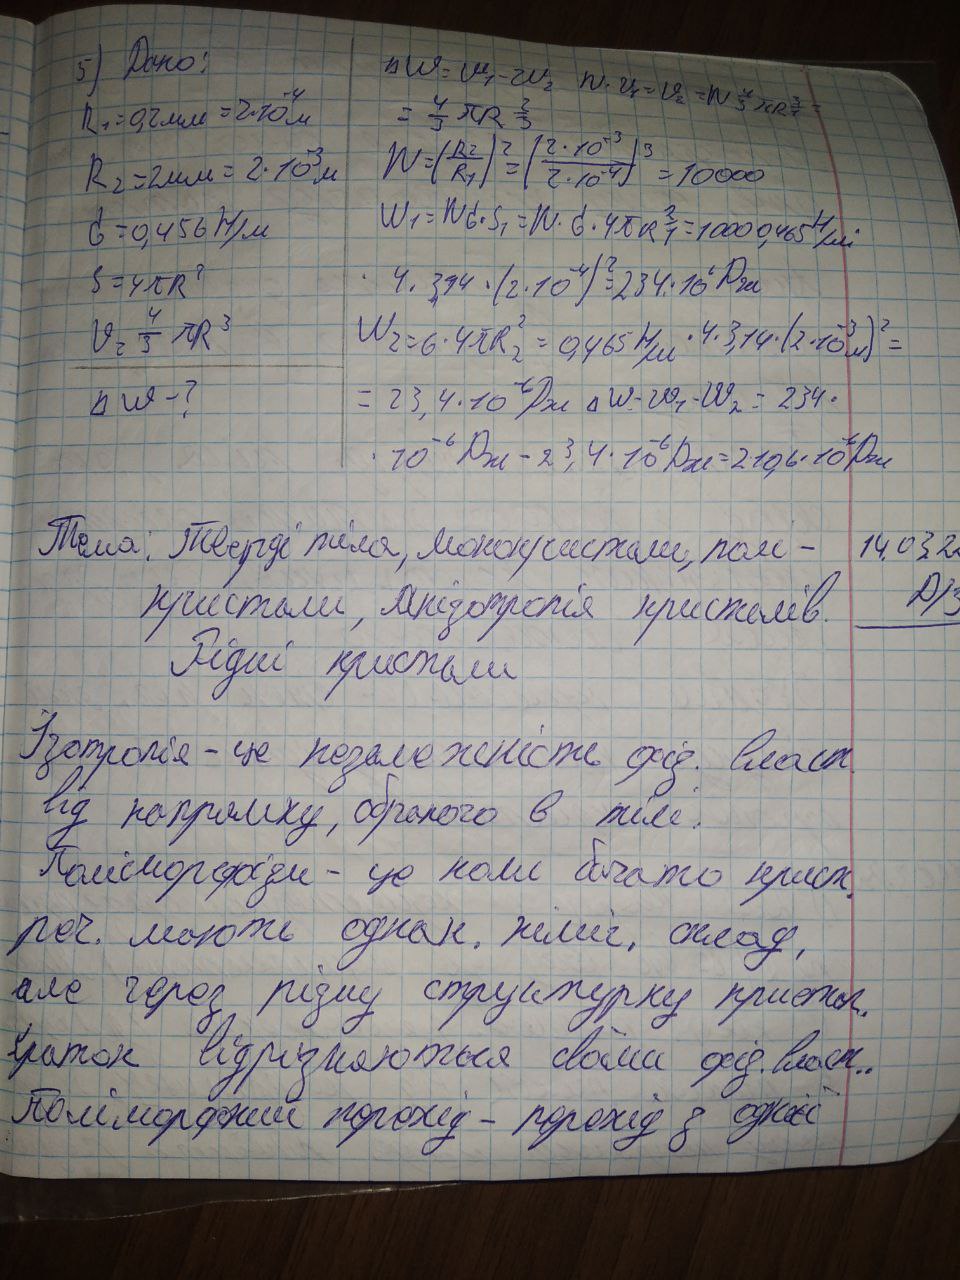 5) Дано:
R₁=0,2мм=2·10⁻⁴м
R₂=2мм=2·10⁻³м
б=0,456Н/м
S=4πR²
V= 4/3 πR³
ΔW-?
ΔW=W₁-W₂ N·V₁=V₂=N 4/3 πR₁³=
= 4/3 πR₂³
N=(R₂/R₁)²=(2·10⁻³/2·10⁻⁴)³=10000
W₁=Nб·S₁=N·б·4πR₁²=10000,465Н/м
·4·3,14·(2·10⁻⁴)²=234·10⁻⁶Дж
W₂=б·4πR₂²=0,465Н/м·4·3,14·(2·10⁻³м)²=
=23,4·10⁻⁶Дж ΔW=W₁-W₂=234·
·10⁻⁶Дж-23,4·10⁻⁶Дж=210,6·10⁻⁶Дж
14.03.22
Д/З
Тема: Тверді тіла, монокристали, полі-
кристали, Анізотропія кристалів.
Рідкі кристали
Ізотропія - це незалежність фіз. власт.
від напрямку, обраного в тілі.
Поліморфізм - це коли багато крист.
реч. мають однак. хіміч. склад,
але через різну структурну кристал.
граток відрізняються своїми фіз. власт..
Поліморфний перехід - перехід з однієї